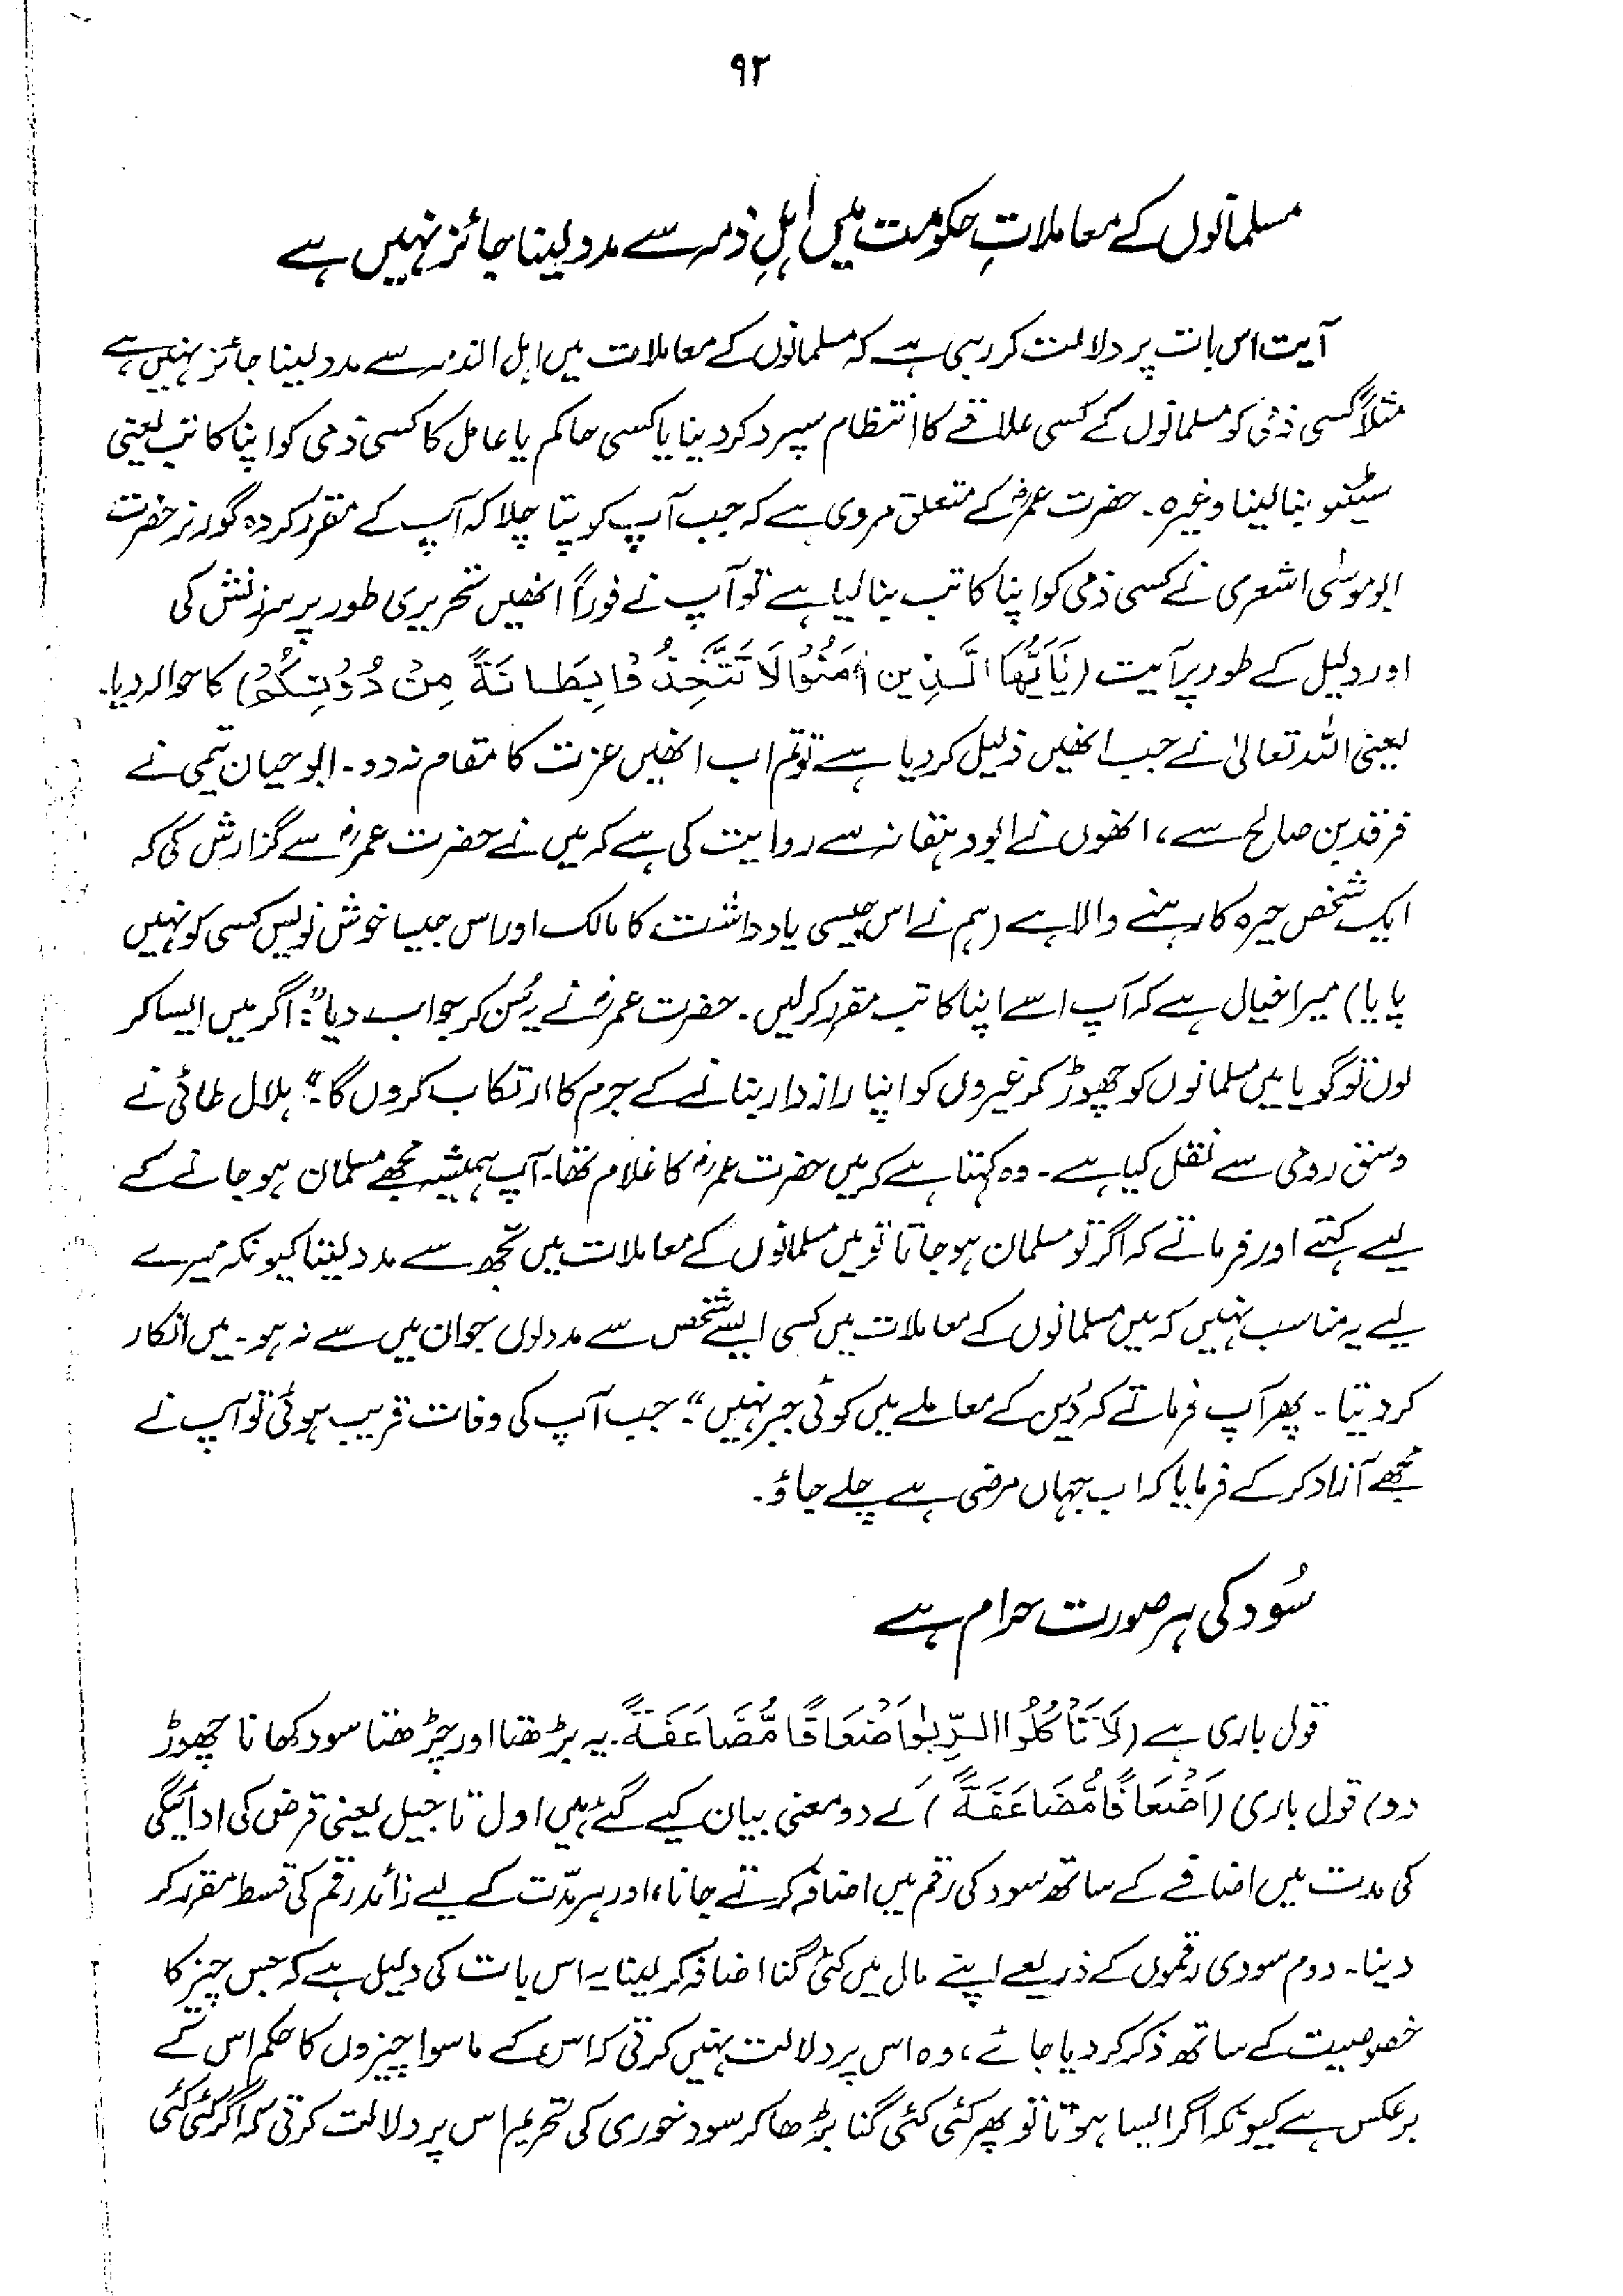 ۹۲
مسلمانوں کے معاملاتِ حکومت میں اہلِ ذمہ سے مدد لینا جائز نہیں ہے
آیت اس بات پر دلالت کر رہی ہے کہ مسلمانوں کے معاملات میں اہل الذمہ سے مدد لینا جائز نہیں ہے
مثلاً کسی ذمی کو مسلمانوں کے کسی علاقے کا انتظام سپرد کر دینا یا کسی حاکم یا عامل کا کسی ذمی کو اپنا کاتب یعنی
سٹینو بنا لینا وغیرہ۔ حضرت عمرؓ کے متعلق مروی ہے کہ جب آپ کو پتا چلا کہ آپ کے مقرر کردہ گورنر حضرت
ابو موسیٰ اشعری نے کسی ذمی کو اپنا کاتب بنا لیا ہے تو آپ نے فوراً انھیں تحریری طور پر سرزنش کی
اور دلیل کے طور پر آیت (یَٰٓاَیُّھَا الَّذِیْنَ اٰمَنُوْا لَا تَتَّخِذُوْا بِطَانَۃً مِنْ دُوْنِکُمْ) کا حوالہ دیا۔
یعنی اللہ تعالیٰ نے جب انھیں ذلیل کر دیا ہے تو تم اب انھیں عزت کا مقام نہ دو۔ ابو حیان تیمی نے
فرقد بن صالح سے، انھوں نے ابو دہقانہ سے روایت کی ہے کہ میں نے حضرت عمرؓ سے گزارش کی کہ
ایک شخص حیرہ کا رہنے والا ہے (ہم نے اس جیسی یادداشت کا مالک اور اس جیسا خوش نویس کسی کو نہیں
پایا) میرا خیال ہے کہ آپ اسے اپنا کاتب مقرر کر لیں۔ حضرت عمرؓ نے یہ سُن کر جواب دیا: "اگر میں ایسا کر
لوں تو گویا میں مسلمانوں کو چھوڑ کر غیروں کو اپنا رازدار بنانے کے جرم کا ارتکاب کروں گا"۔ ہلال طائی نے
وسق رومی سے نقل کیا ہے۔ وہ کہتا ہے کہ میں حضرت عمرؓ کا غلام تھا۔ آپ ہمیشہ مجھے مسلمان ہو جانے کے
لیے کہتے اور فرماتے کہ اگر تو مسلمان ہو جاتا تو میں مسلمانوں کے معاملات میں تجھ سے مدد لیتا کیونکہ میرے
لیے یہ مناسب نہیں کہ میں مسلمانوں کے معاملات میں کسی ایسے شخص سے مدد لوں جو ان میں سے نہ ہو۔ میں انکار
کر دیتا۔ پھر آپ فرماتے کہ "دین کے معاملے میں کوئی جبر نہیں"۔ جب آپ کی وفات قریب ہوئی تو آپ نے
مجھے آزاد کر کے فرمایا کہ اب جہاں مرضی ہے چلے جاؤ۔
سُود کی ہر صورت حرام ہے
قول باری ہے (لَا تَاْکُلُوا الرِّبٰوا اَضْعَافًا مُّضَاعَفَۃً۔ یہ بڑھتا اور چڑھتا سود کھانا چھوڑ
دو) قول باری (اَضْعَافًا مُّضَاعَفَۃً) کے دو معنی بیان کیے گئے ہیں اول تاجیل یعنی قرض کی ادائیگی
کی مدت میں اضافے کے ساتھ سود کی رقم میں اضافہ کرتے جانا، اور ہر مدّت کے لیے زائد رقم کی قسط مقرر کر
دینا۔ دوم سودی رقموں کے ذریعے اپنے مال میں کئی گنا اضافہ کر لینا یہ اس بات کی دلیل ہے کہ جس چیز کا
خصوصیت کے ساتھ ذکر کر دیا جائے، وہ اس پر دلالت نہیں کرتی کہ اس کے ماسوا چیزوں کا حکم اس کے
برعکس ہے کیونکہ اگر ایسا ہوتا تو پھر کئی کئی گنا بڑھا کر سود خوری کی تحریم اس پر دلالت کرتی کہ اگر کئی کئی